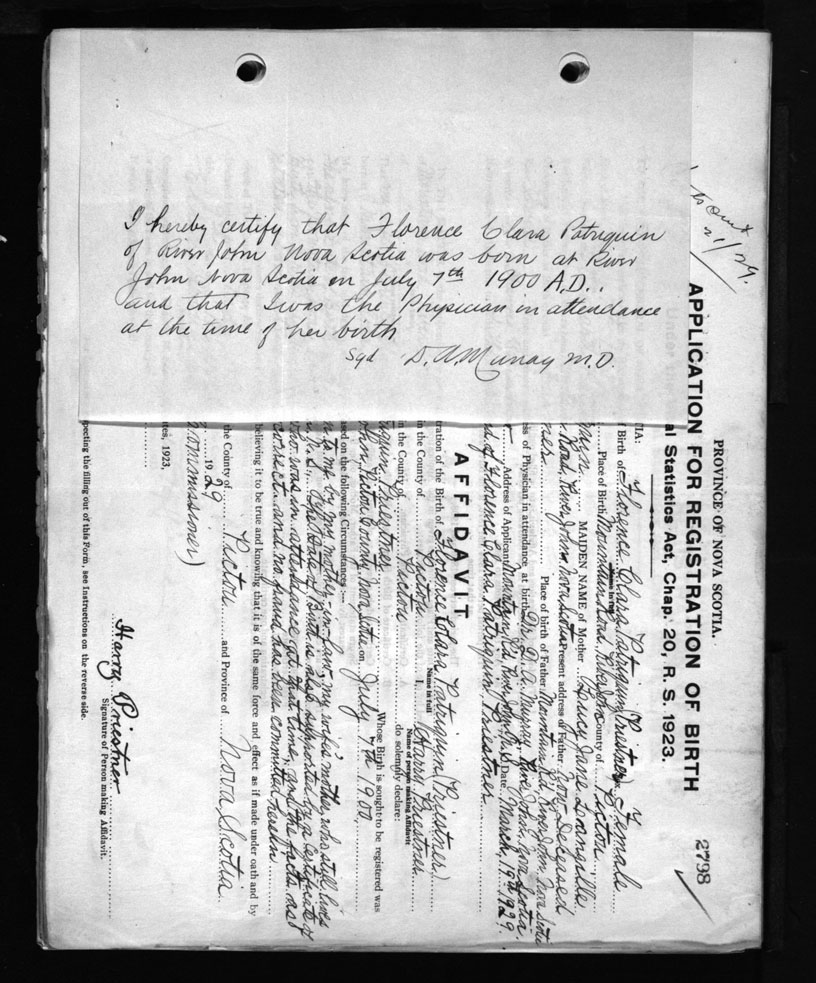 I hereby certify that Florence Clara Patriquin
of River John Nova Scotia was born at River
John Nova Scotia on July 7th 1900 A.D..
and that I was the Physician in attendance
at the time of her birth
Sgd D. A. Murray M.D.
21/29.
PROVINCE OF NOVA SCOTIA.
APPLICATION FOR REGISTRATION OF BIRTH
2798
al Statistics Act, Chap. 20, R. S. 1923.
TIA:
Birth of Florence Clara Patriquin (Priestner) Female
Name in full
Place of Birth Mountain Road, River John County of Pictou
MAIDEN NAME of Mother Lucy Jane Langille
Road, River John Nova Scotia Present address of Father Now Deceased
ner Place of birth of Father Mountain Rd, River John Nova Scotia
ss of Physician in attendance at birth Dr. D. A. Murray, River John, Nova Scotia
Address of Applicant Mountain Rd, River John N.S. Date March, 19th 1929.
of Florence Clara Patriquin Priestner
AFFIDAVIT
tration of the Birth of Florence Clara Patriquin (Priestner)
Name in full
in the County of Pictou I, Harry Priestner
Name of person making Affidavit
in the County of Pictou do solemnly declare:
riquin Priestner Whose Birth is sought to be registered was
ohn, Pictou County, Nova Scotia on July 7th 1900
sed on the following Circumstances:—
n to me by my mother-in-law, my wife's mother, who still lives
N.S. The Date of Birth is also supported by a certificate of
who was in attendance at that time, and the facts as
correct and no fraud has been committed herein
believing it to be true and knowing that it is of the same force and effect as if made under oath and by
the County of Pictou and Province of Nova Scotia
1929
Commissioner)
tes, 1923.
Harry Priestner
Signature of Person making Affidavit.
pecting the filling out of this Form, see Instructions on the reverse side.